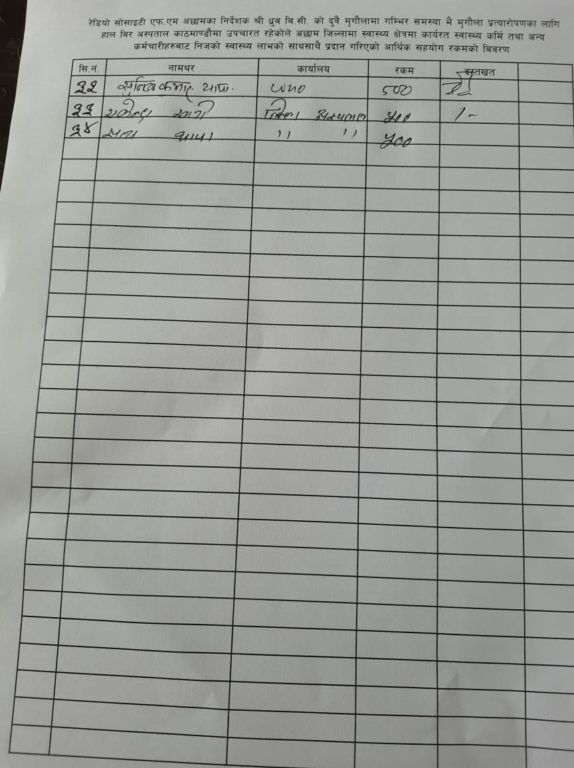 रेडियो सोसाइटी एफ.एम अछामका निर्देशक श्री ध्रुब बि.सी. को दुवै मृगौलामा गम्भिर समस्या भै मृगौला प्रत्यारोपणका लागि
हाल बिर अस्पताल काठमाण्डौमा उपचारत रहेकोले अछाम जिल्लामा स्वास्थ्य क्षेत्रमा कार्यरत स्वास्थ्य कर्मि तथा अन्य
कर्मचारीहरुबाट निजको स्वास्थ्य लाभको साथसाथै प्रदान गरिएको आर्थिक सहयोग रकमको बिवरण
सि.नं. नामथर कार्यालय रकम दस्तखत
३२ WHO ५००
३३ जिल्ला अस्पताल ५०० /-
३४ थापा " " ५००